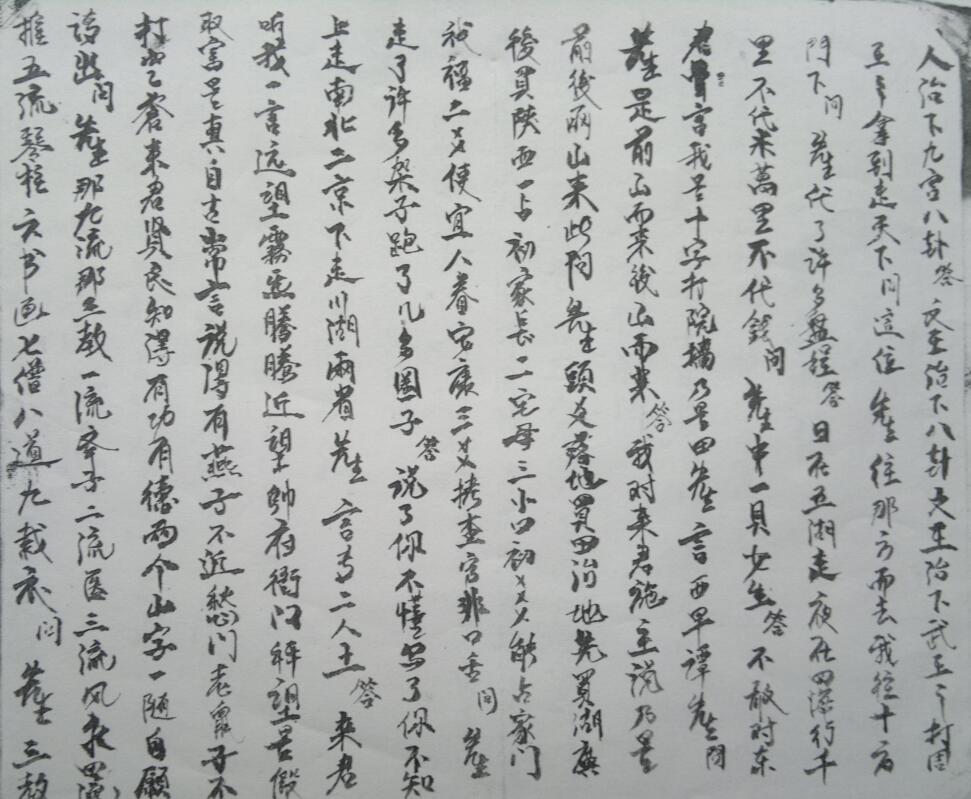 人治下九宫八卦答文王治下八卦文王治下武王之村周
王之拿到走天下问這位先生往那方而去我往十方
門下问先生代了许多盘程答日在五湖走夜在四海行千
里不代米萬里不代钱问先生中一貝女生答不敢对东
君言我是十字打院墙乃是田先生言西早谭先生问
先生是前山而来後山而来答我对来君施主说乃是
前後两山来此问先生頭爻落地買田治地先買湖廣
後買陕西一占初家长二宅母三小口初爻爻爻能占家門
祸福二爻便宜人眷安康三爻拷查官非口舌问先生
走了许多架子跑了几多圈子答说了你不懂写了你不知
上走南北二京下走川湖两省先生言寺二人土答来君
听我一言远望霧氣騰騰近望帥府衙门称望是假
取富是真自古常言说得有燕子不近愁门老鼠子不
村出乙蒼来君贤良知得有功有德两个山字一随自願
請出问先生那九流那三教一流举子二流医三流风水四流
推五流琴柱六书画七僧八道九裁衣问先生三教